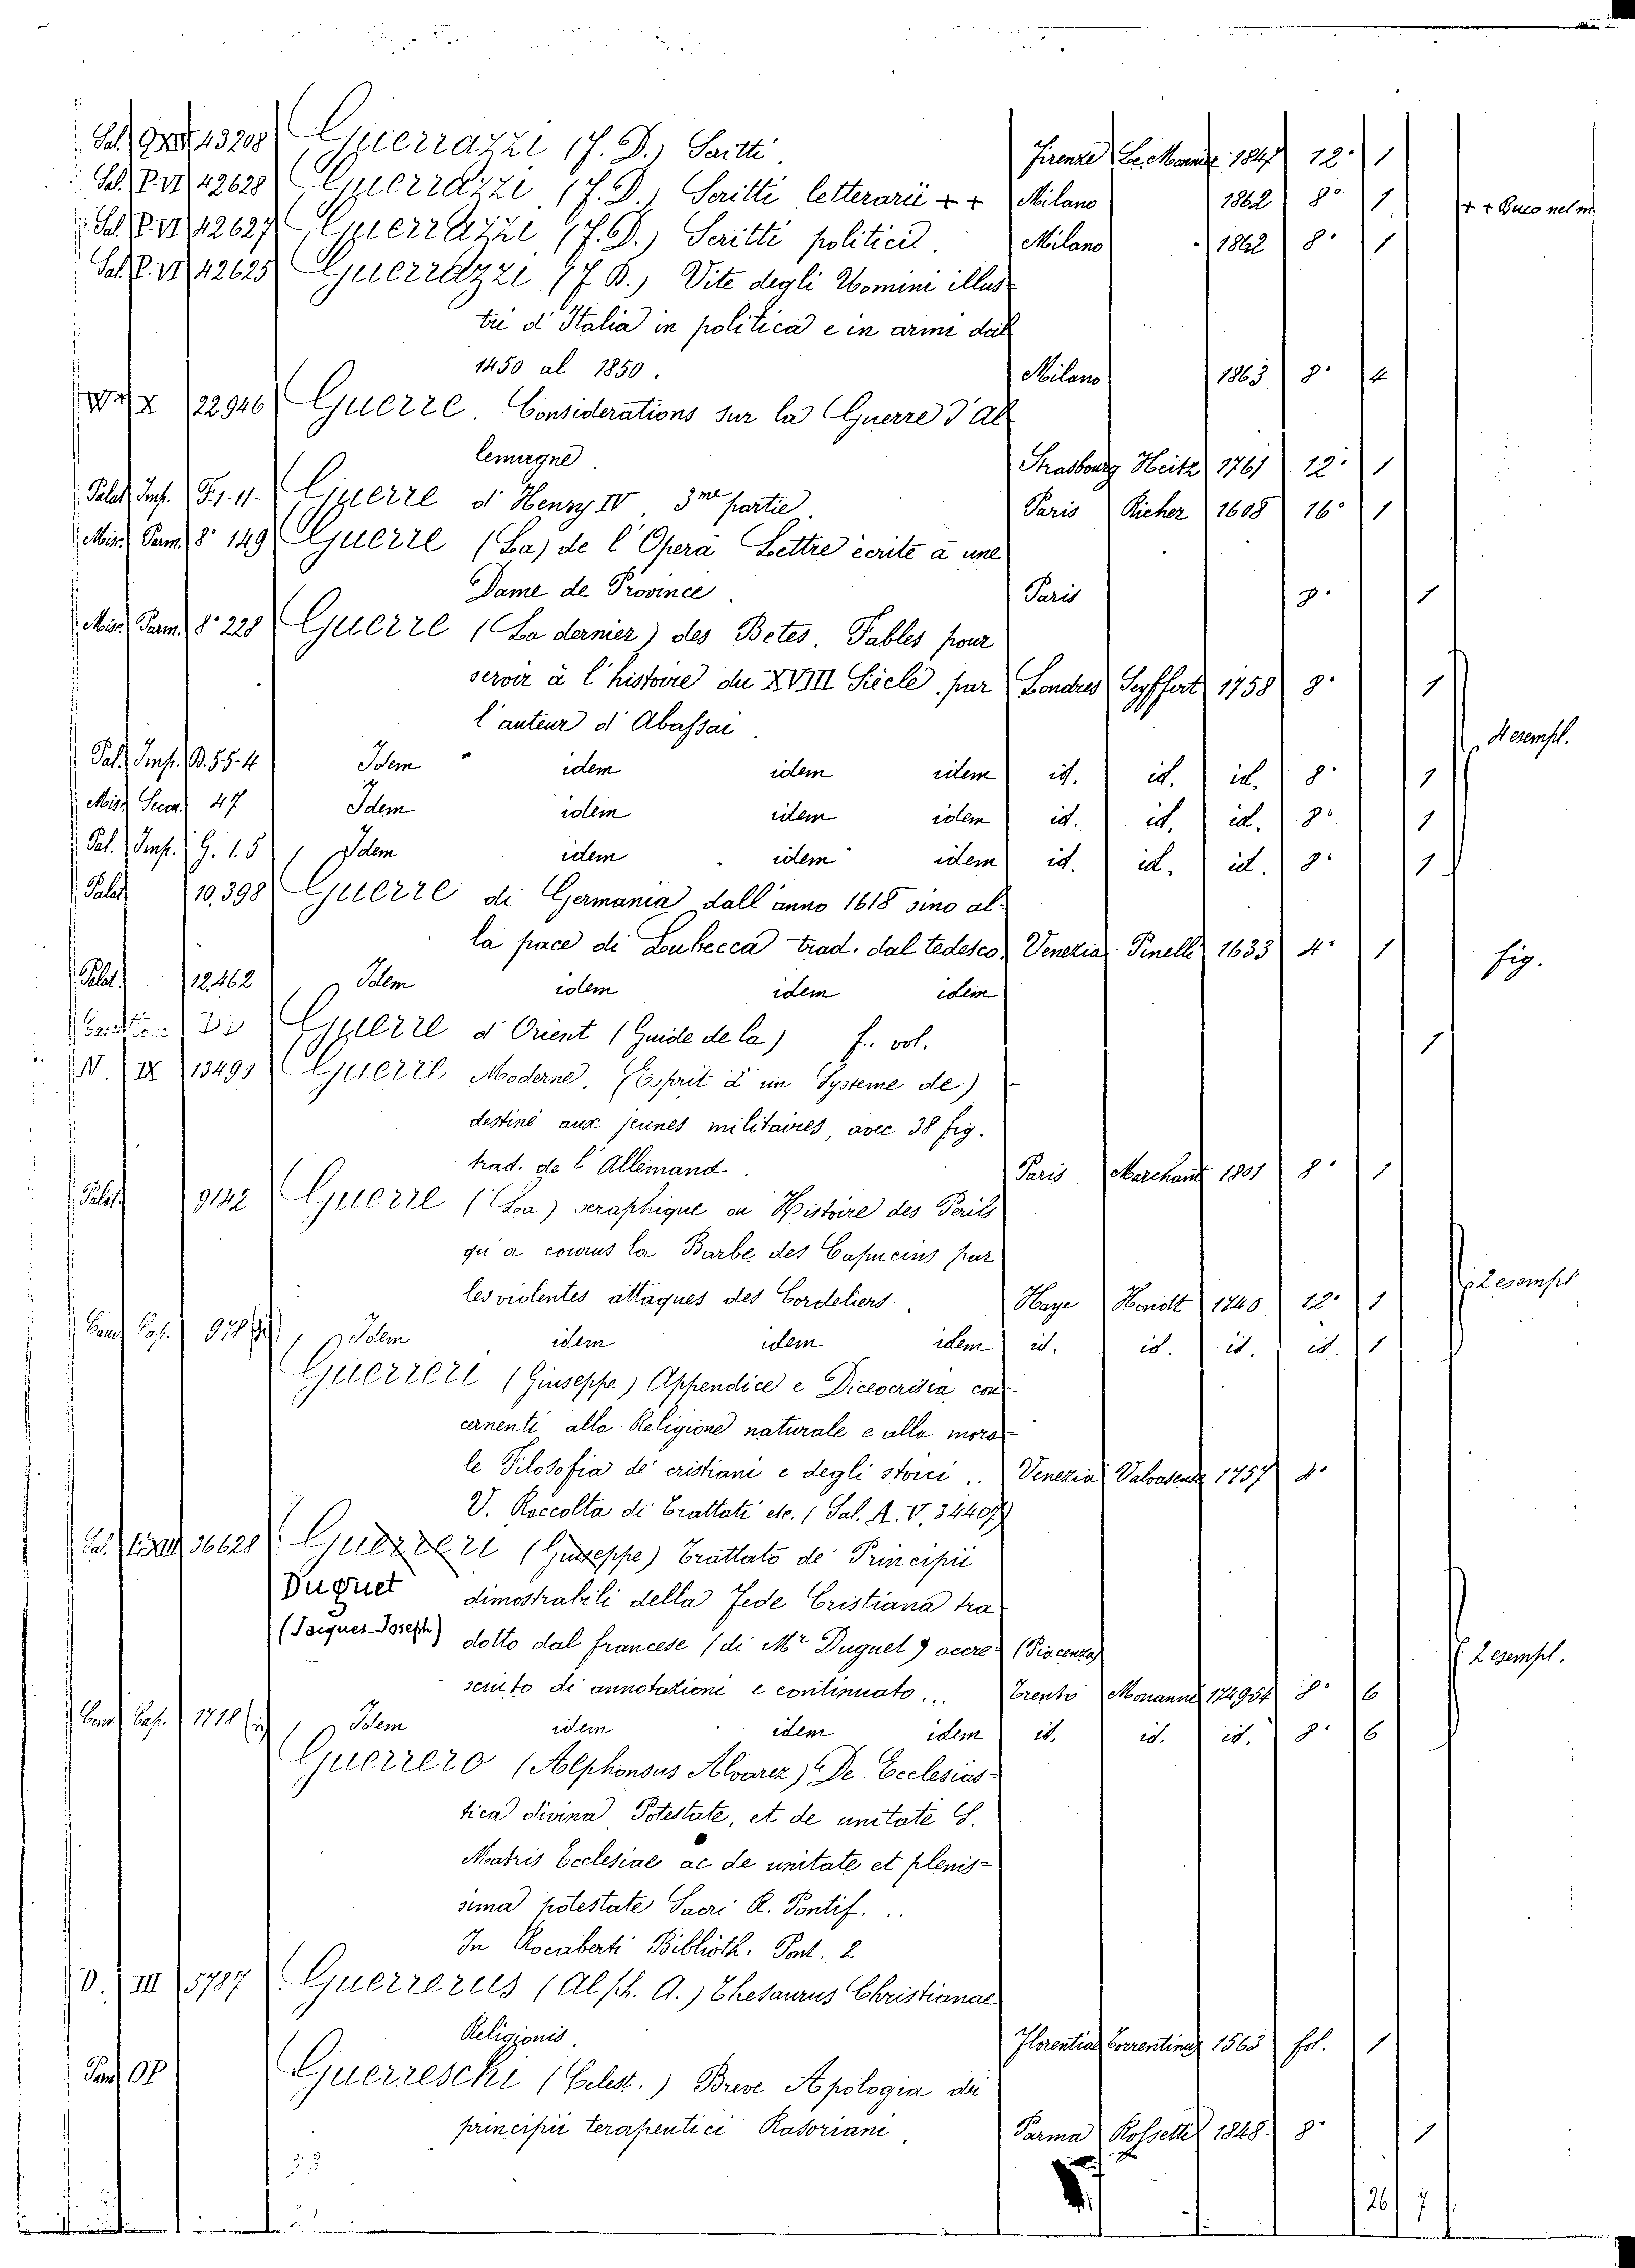 Sal. 43208 Guerrazzi (F. D.) Scritti. Firenze Le Monnier 1847 12° 1
Sal. P. VI 42628 Guerrazzi (F. D.) Scritti letterarii ++ Milano 1862 8° 1 ++ Buco nel m
Sal. P. VI 42627 Guerrazzi (F. D.) Scritti politici. Milano 1862 8° 1
Sal. P. VI 42625 Guerrazzi (F. D.) Vite degli Uomini illus-
tri d'Italia in politica e in armi dal
1450 al 1850. Milano 1863 8° 4
X 22946 Guerre. Considerations sur la Guerre d'Al
lemagne. Strasbourg Heitz 1761 12° 1
Palat. Imp. F. 1. 11. Guerre d'Henry IV, 3me partie. Paris Richer 1608 16° 1
Misc. Parm. 8° 149 Guerre (La) de l'Opera Lettre ecrite à une
Dame de Province. Paris 8° 1
Misc. Parm. 8° 228 Guerre (La dernier) des Betes. Fables pour
servir à l'histoire du XVIII Siècle, par Londres Seyffert 1758 8° 1
l'auteur d'Abassai.
4 esempl.
Pal. Imp. B. 55. 4 Idem idem idem idem id. id. id. 8° 1
Misc. 47 Idem idem idem idem id. id. id. 8° 1
Pal. Imp. G. 1. 5 Idem idem idem idem id. id. id. 8° 1
Palat. 10.398 Guerre di Germania dall'anno 1618 sino al-
la pace di Loubecca trad. dal tedesco Venezia Pinelli 1633 4° 1 fig.
Palat. 12,462 Idem idem idem idem
Guerre d'Orient (Guide de la) f. vol. 1
N. IX 13491 Guerre Moderne, (Esprit d'un Systeme de)
destiné aux jeunes militaires, avec 38 fig.
trad. de l'Allemand. Paris Marchant 1801 8° 1
Palat. 9142 Guerre (La) seraphique ou Histoire des Perils
qu'a courus la Barbe des Capucins par
les violentes attaques des Cordeliers. Haye Hondt 1740 12° 1 2 esempl
Cam. Cap. 978 Idem idem idem idem id. id. id. id. 1
Guerrieri (Giuseppe) Appendice e Diceocrisia con-
cernenti alla Religione naturale e alla mora-
le Filosofia de' cristiani e degli stoici.. Venezia Valvasense 1757 4°
V. Raccolta di Trattati etc. (Sal. A. V. 34407)
Sal. 36628 Guerreri (Giuseppe) Trattato de' Principii
Duguet dimostrabili della Fede Cristiana tra
(Jacques-Joseph) dotto dal francese (di Mr Duguet) accre- (Piacenza) 2 esempl.
sciuto di annotazioni e continuato... Trento Monauni 174954 8° 6
Cam. Cap. 1718 Idem idem idem idem id. id. id. 8° 6
Guerrero (Alphonsus Alvarez) De Ecclesias-
tica divina Potestate, et de unitate S.
Matris Ecclesiae ac de unitate et plenis-
sima potestate Sacri R. Pontif. ..
In Rocaberti Biblioth. Pont. 2
D. III 5787 Guerrerus (Alph. A.) Thesaurus Christianae
Religionis. Florentiae Torrentinus 1563 fol. 1
OP Guerreschi (Celest.) Breve Apologia dei
principii terapeutici Rasoriani. Parma Rossetti 1848 8° 1
26 7